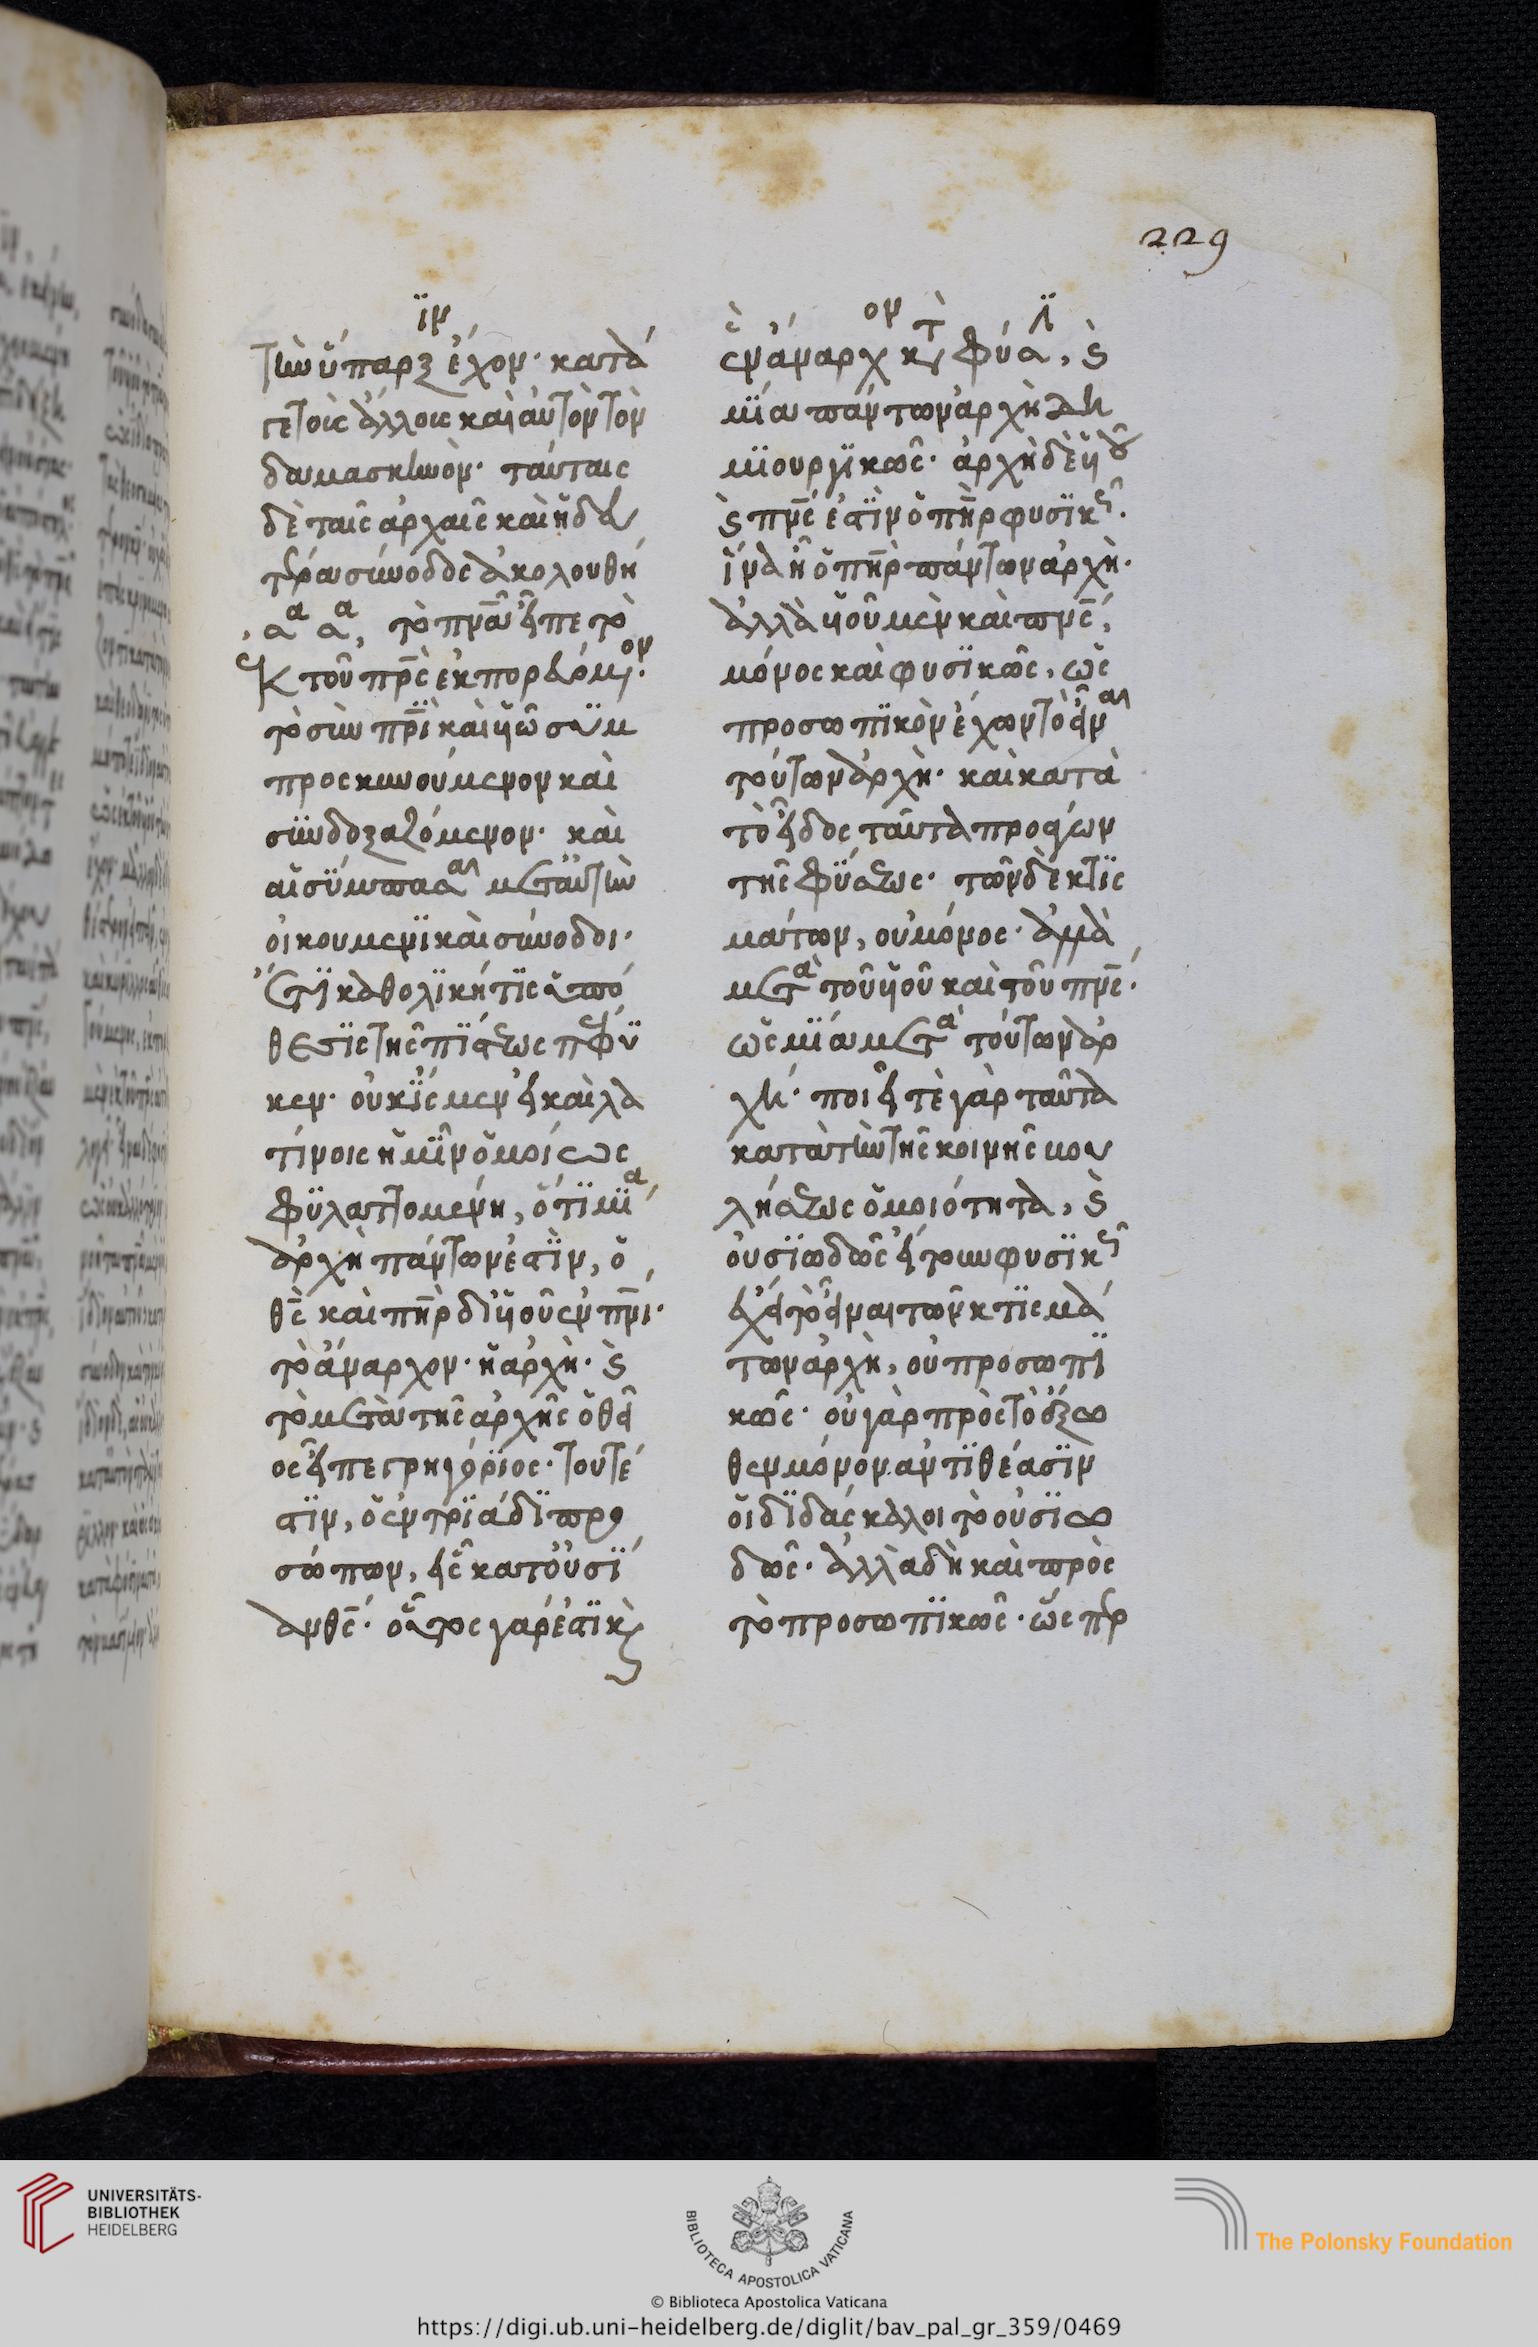 229
τὴν ὕπαρξιν ἔχον· κατά
γε τοὺς ἄλλους καὶ αὐτὸν τὸν
δαμασκηνὸν· ταύταις
δὲ ταῖς ἀρχαῖς καὶ ἡ δευ
τέρα σύνοδος ἀκολουθή
σασα, τὸ πνᾶ εἶπε τὸ
ἐκ τοῦ πρς ἐκπορευόμενον·
τὸ σὺν πρι καὶ υἱῶ συμ
προσκυνούμενον καὶ
συνδοξαζόμενον· καὶ
αἱ σύμπασαι μετ' αὐτὴν
οἰκουμενικαὶ σύνοδοι·
ἔτι ἡ καθολική τις ὑπό
θεσις τῆς πίστεως πέφυ
κεν· οὐκ ἴσμεν εἰ καὶ λα
τίνοις ἡμῖν ὁμοίως
φυλαττομένη, ὅτι μία
ἀρχὴ πάντων ἐστὶν, ὁ
θς καὶ πηρ δι υἱοῦ ἐν πνι·
τὸ ἄναρχον· ἡ ἀρχὴ· καὶ
τὸ μετὰ τῆς ἀρχῆς ὁ θεῖ
ος εἶπε γρηγόριος· τουτέ
στιν, ὁ ἐν τριάδι προ
σώπων, εἷς κατ' οὐσί
αν θς· οὗτος γάρ ἐστι καὶ
ἓν ἄναρχον κατὰ φύσιν, καὶ
μία πάντων ἀρχὴ δη
μιουργικῶς· ἀρχὴ δὲ υἱοῦ
καὶ πνς ἐστὶν ὁ πηρ φυσικῶς·
ἵνα ᾖ ὁ πηρ πάντων ἀρχὴ·
ἀλλὰ υἱοῦ μὲν καὶ πνς,
μόνος καὶ φυσικῶς, ὡς
προσωπικὸν ἔχων τὸ εἶναι
τούτων ἀρχὴ· καὶ κατὰ
τὸ εἶδος ταῦτα προσιὼν
τῆς φύσεως· τῶν δὲ κτισ
μάτων, οὐ μόνος· ἀλλὰ
μετὰ τοῦ υἱοῦ καὶ τοῦ πνς·
ὡς μία μετὰ τούτων ἀρ
χή· ποιεῖ τὲ γὰρ ταῦτα
κατὰ τὴν τῆς κοινῆς βου
λήσεως ὁμοιότητα, καὶ
οὐσιωδῶς εἴτουν φυσικῶς
ἔχει τὸ εἶναι τῶν κτισμά
των ἀρχὴ, οὐ προσωπι
κῶς· οὐ γὰρ πρὸς τὸ ἔξω
θεν μόνον ἀντιθέασιν
οἱ διδάσκαλοι τὸ οὐσιω
δῶς· ἀλλὰ δὴ καὶ πρὸς
τὸ προσωπικῶς· ὥσπερ
UNIVERSITÄTS-
BIBLIOTHEK
HEIDELBERG
BIBLIOTECA APOSTOLICA VATICANA
The Polonsky Foundation
© Biblioteca Apostolica Vaticana
https://digi.ub.uni-heidelberg.de/diglit/bav_pal_gr_359/0469